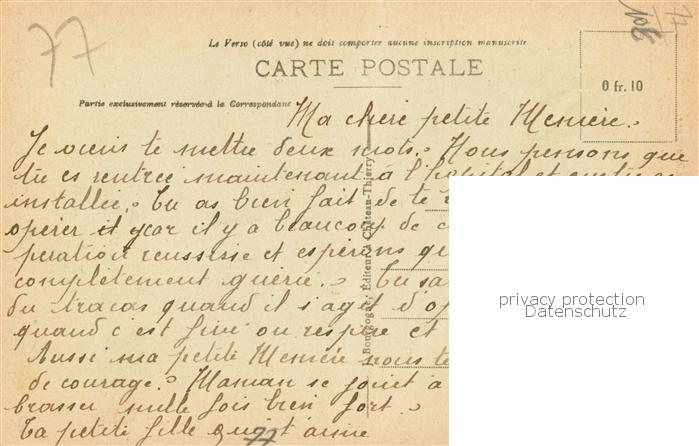 77
77
108
Le Verso (côté vue) ne doit comporter aucune inscription manuscrite
CARTE POSTALE
Partie exclusivement réservée à la Correspondance
0 fr. 10
Ma chère petite Memère.
Je viens te mettre deux mots. Nous pensons que
tu es rentrée maintenant à l'hopital et
installée. Tu as bien fait de te
opérer car il y a beaucoup de
pération reussisse et espérons
complètement guérie. Tu
du tracas quand il s'agit
quand c'est fini on respire et
Aussi ma petite Memère nous te
de courage. Maman se joint à
brasser mille fois bien fort.
Ta petite fille qui t'aime
77
Bourgogne, Éditeur, Château-Thierry
privacy protection
Datenschutz